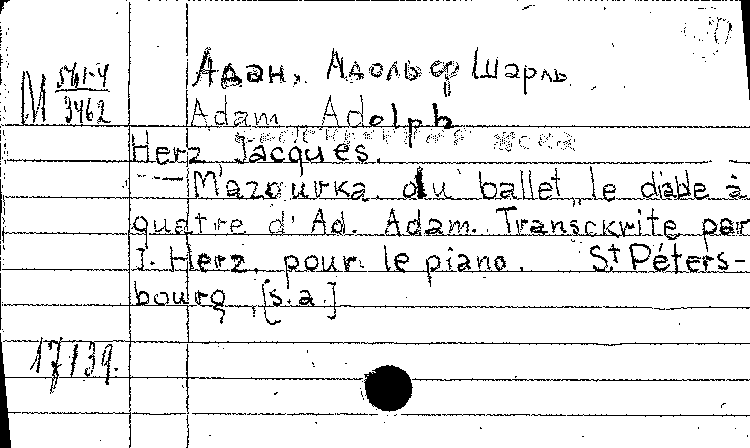 Адан, Адольф Шарль
М 561-4/3462
Adam, Adolph
Herz, Jacques.
Mazourka du ballet „le diable à
quatre d'Ad. Adam. Transckrite par
J. Herz, pour le piano. St Péters-
bourg, [s.a.]
17139.